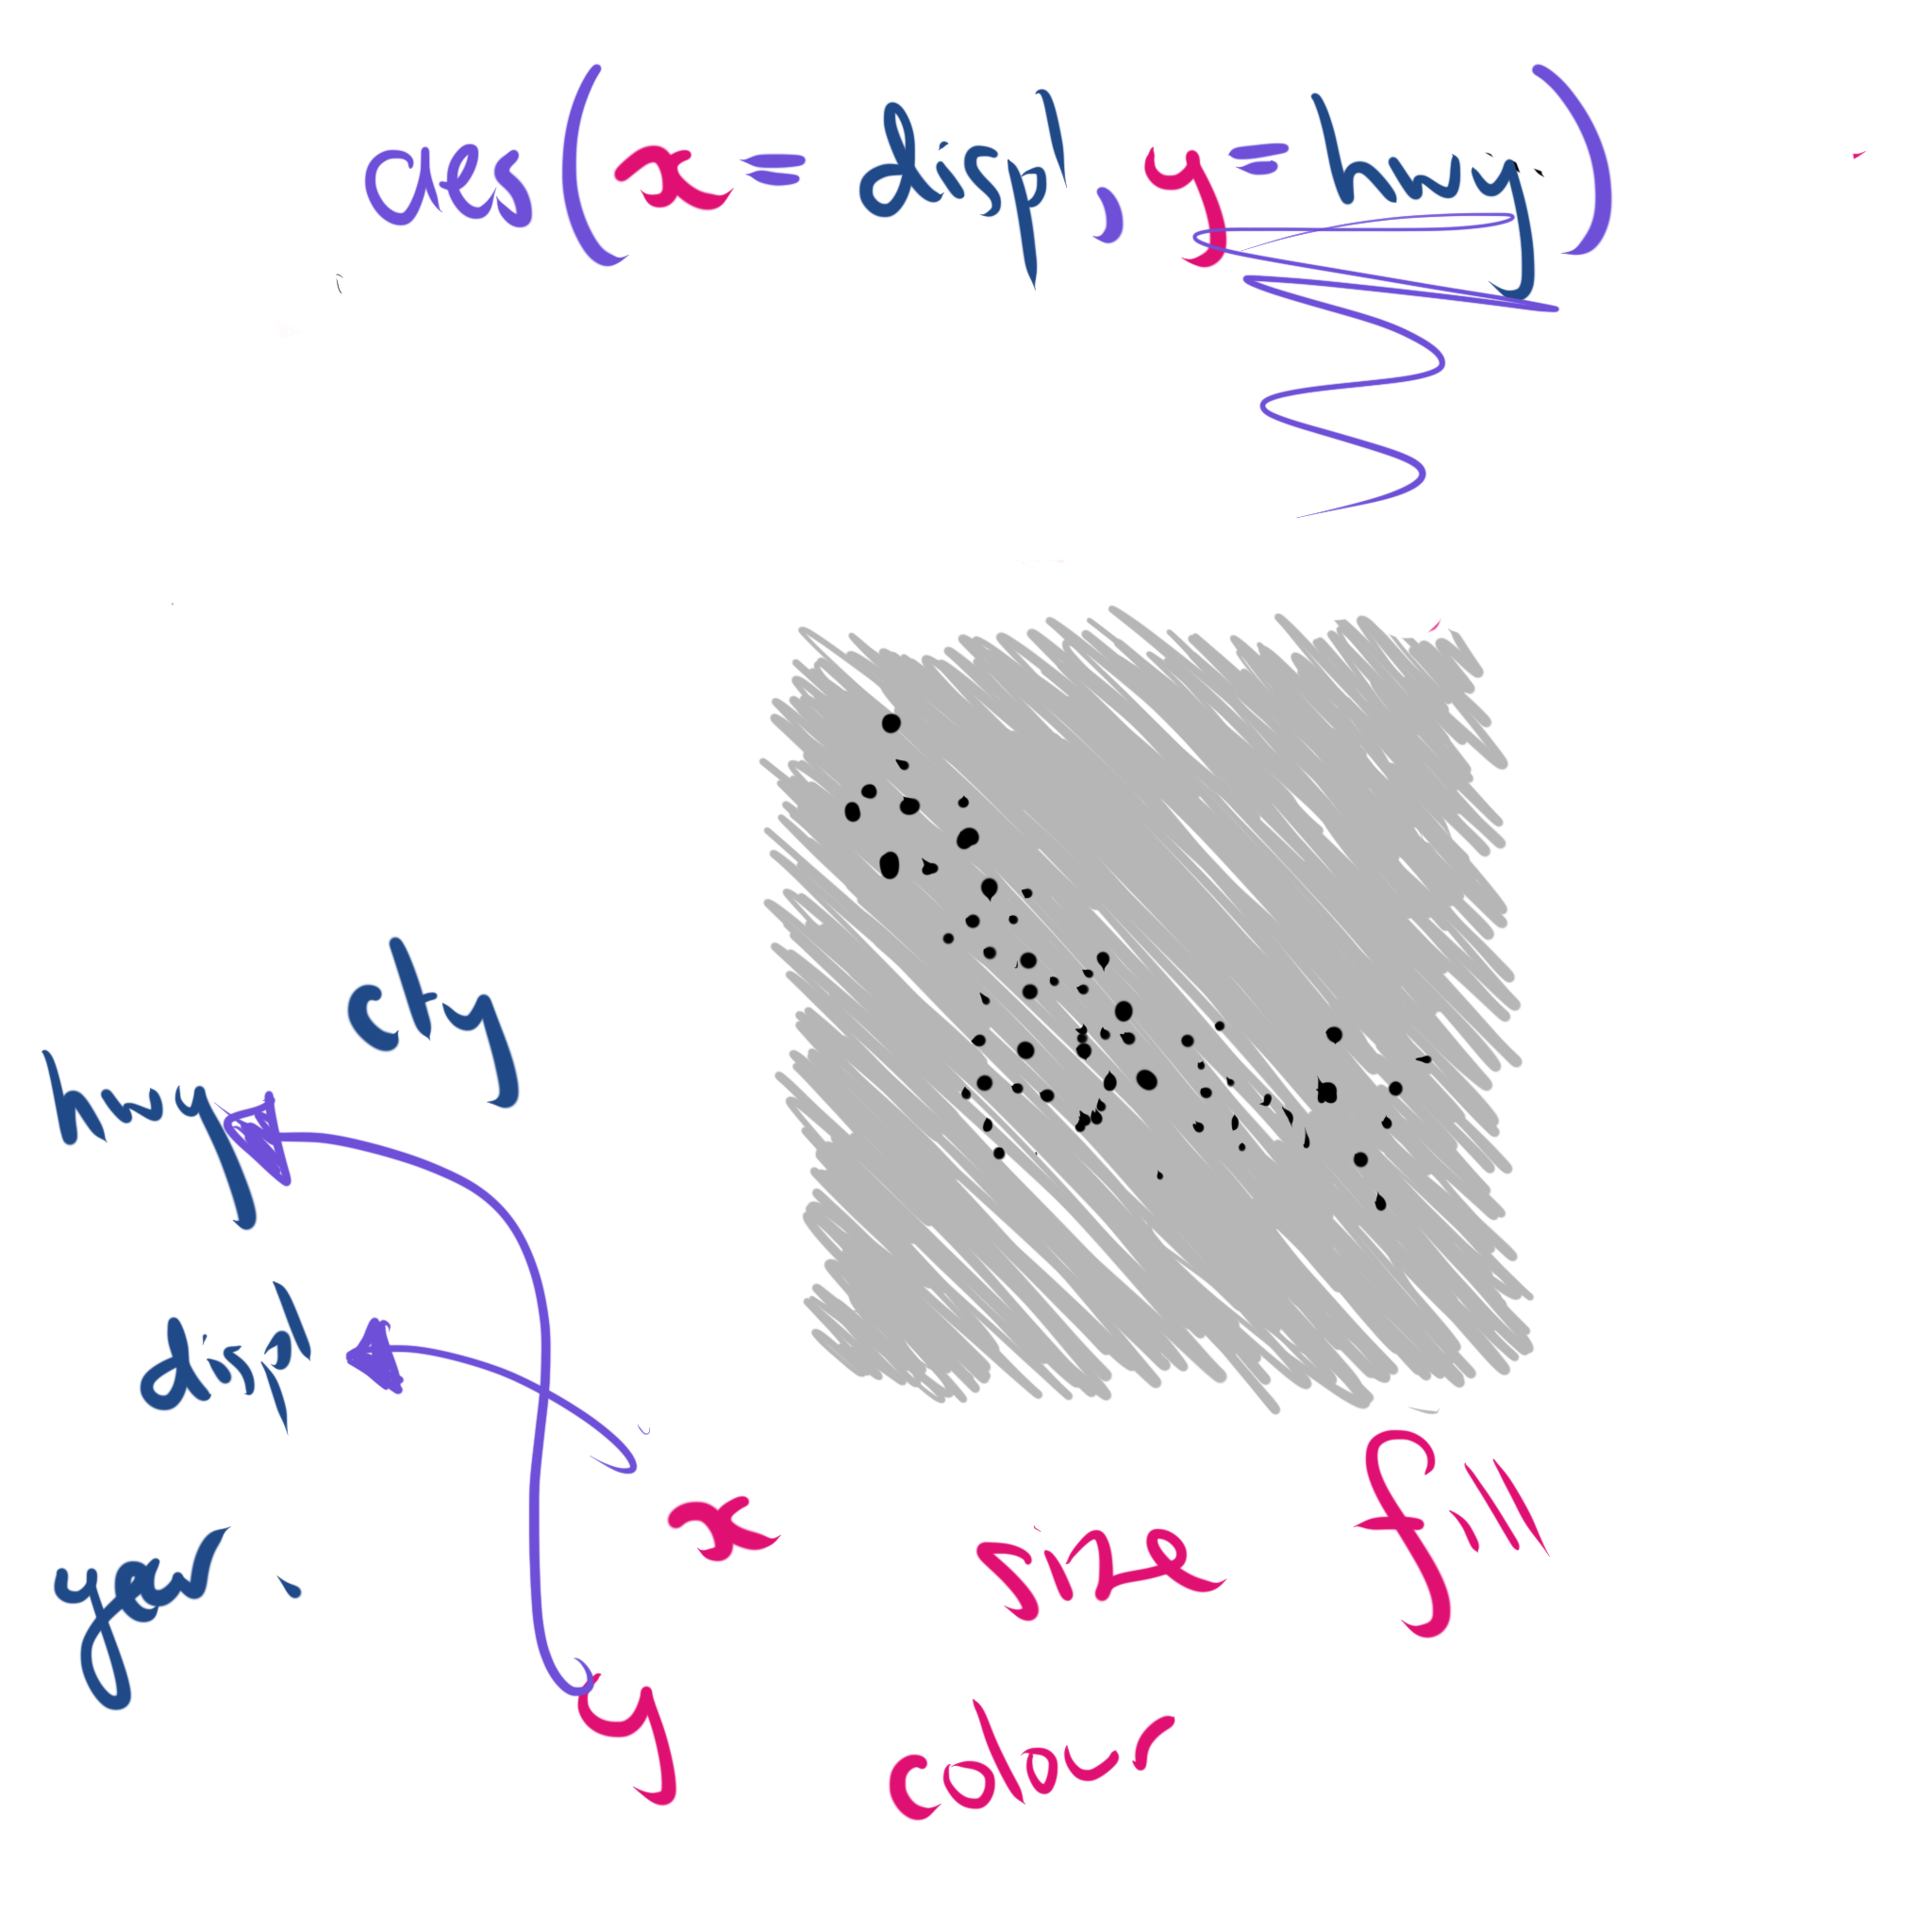 aes(x = displ, y = hwy)
cty
hwy
displ
year
x
size
fill
y
colour